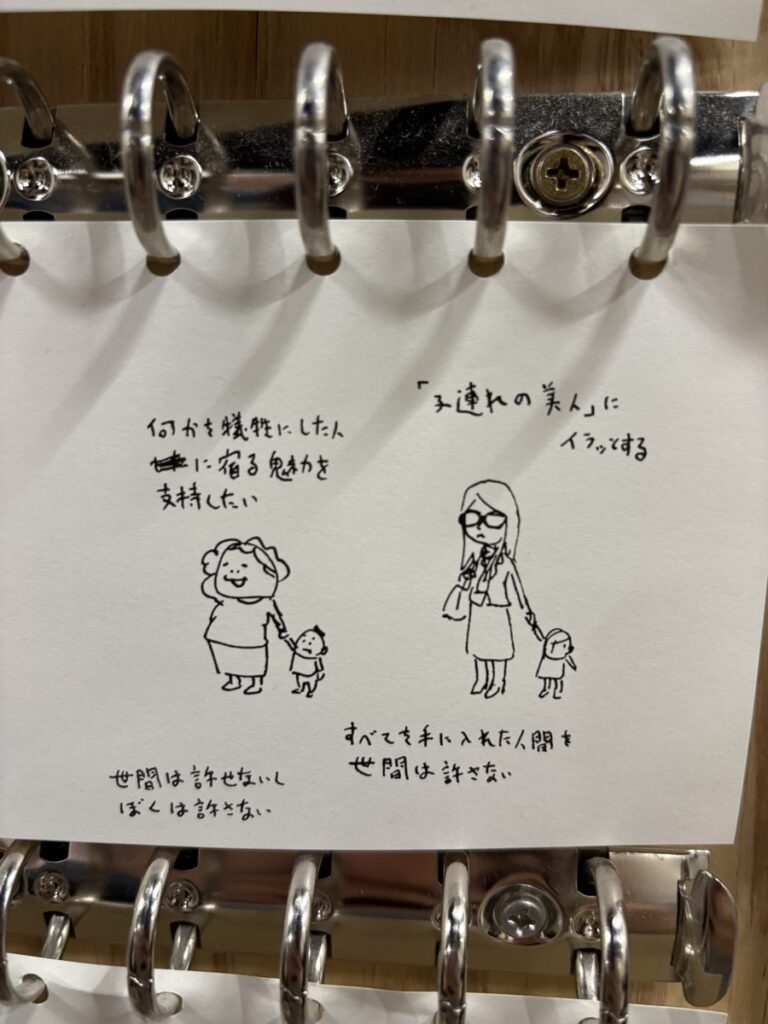 「子連れの美人」に
イラッとする
何かを犠牲にした人
に宿る魅力を
支持したい
すべてを手に入れた人間を
世間は許さない
世間は許せないし
ぼくは許さない